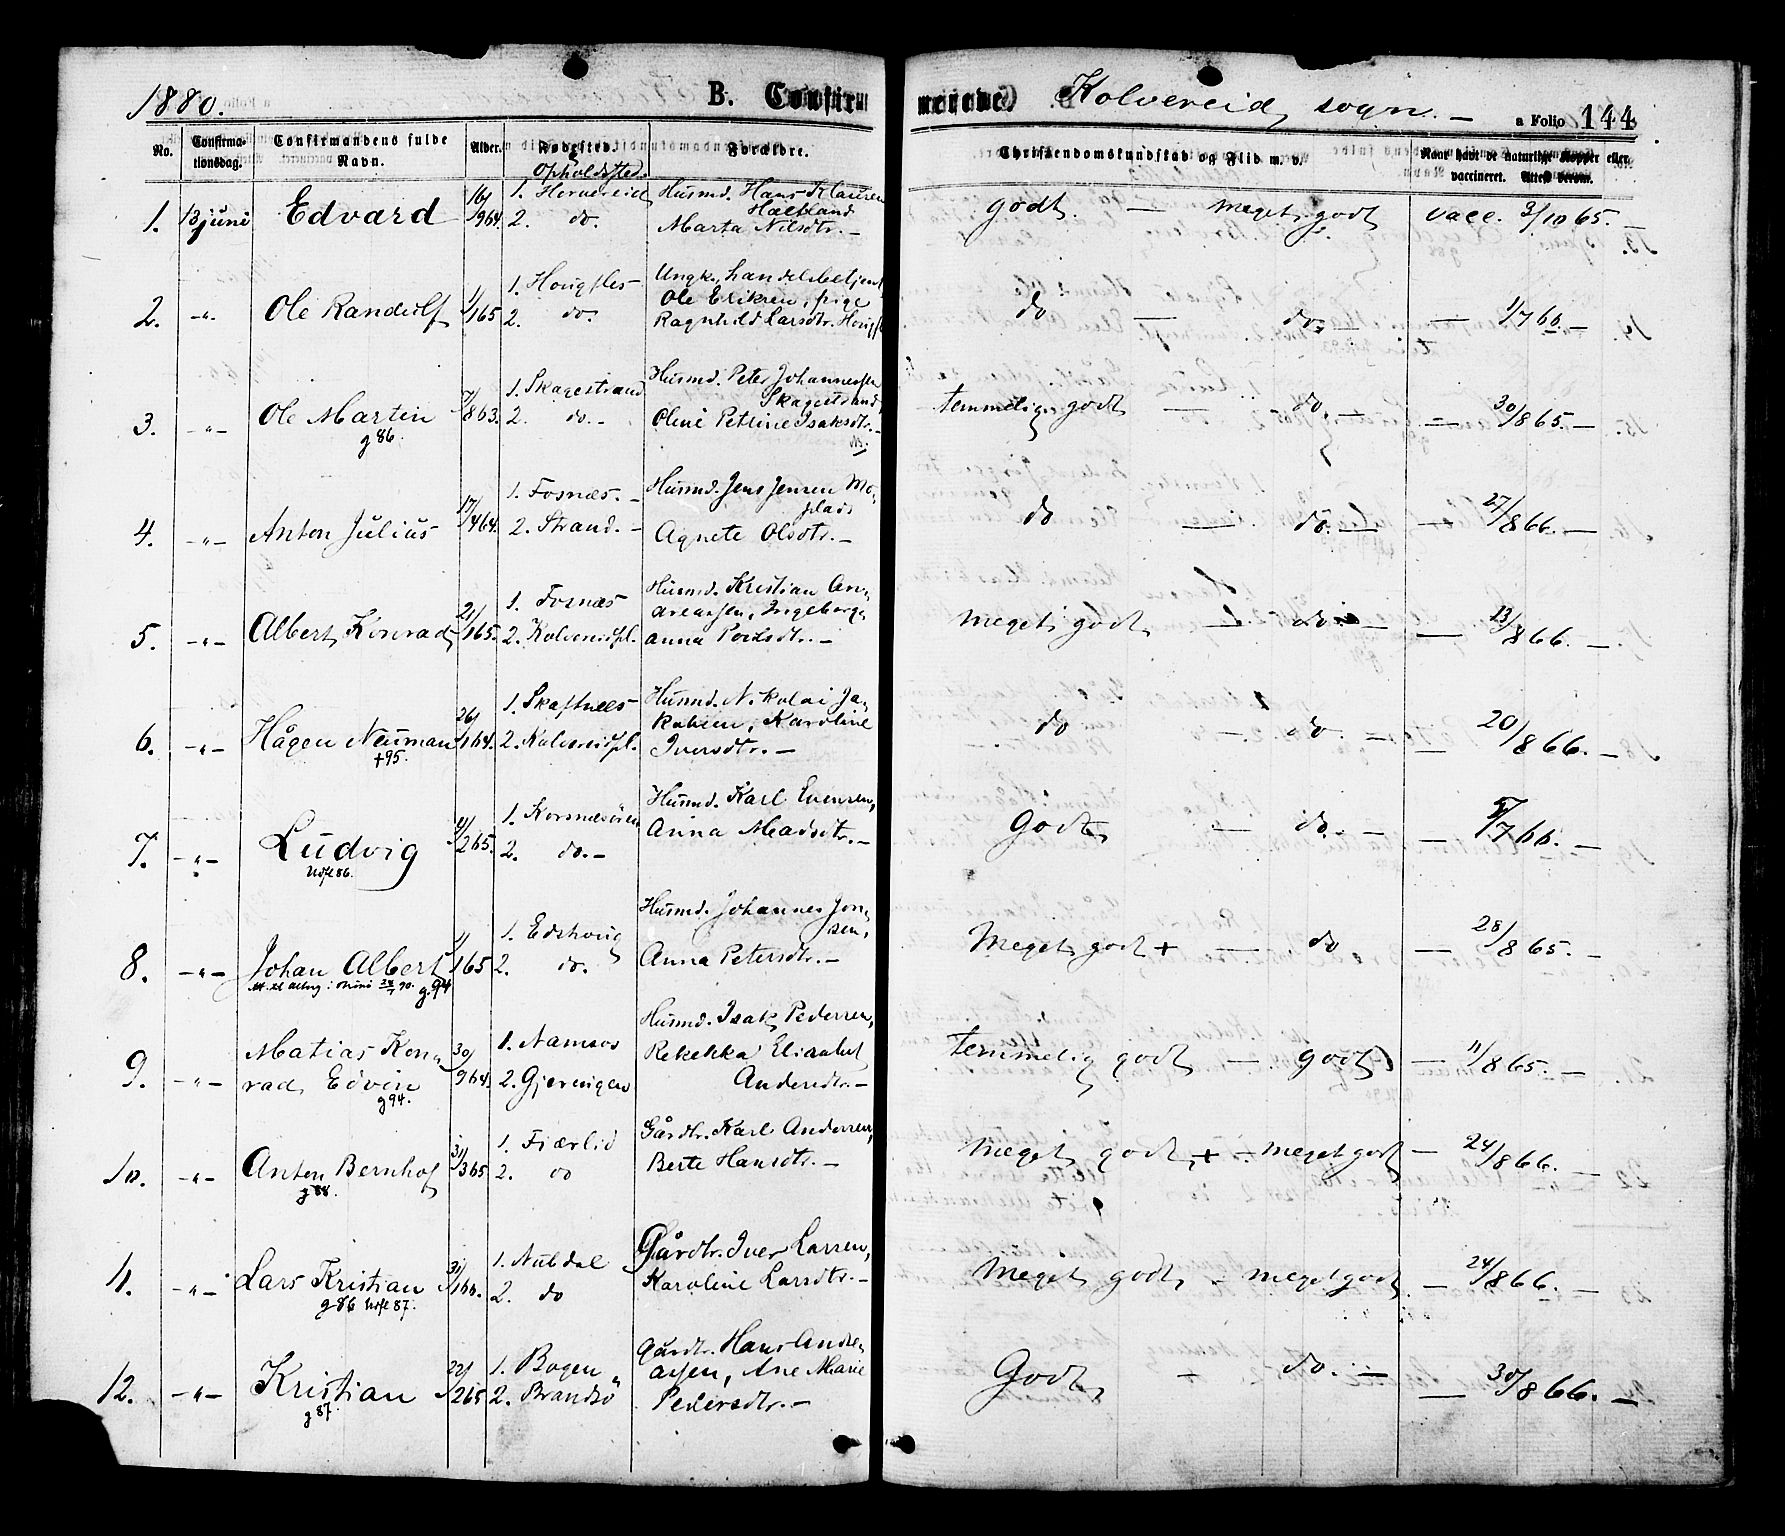 1880.
B. Confirmerede. Kolvereid sogn. —
a Folio 144
No.
Confirmationsdag.
Confirmandens fulde Navn.
Alder.
Fødested.
Opholdssted.
Forældre.
Christendomskundskab og Flid m. v.
Naar havt de naturlige Kopper eller vaccineret. Attest derom.
1. 13 juni Edvard 16/9 64. 1. Hornereid Husmd. Hans Klausen
2. do. Marta Nilsdtr. —
godt. — meget godt vacc. 3/10 65. —
2. —"— Ole Randulf 1/1 65 1. Hougfles Ungk., handelsbetjent
2. do. Ole Eriksen, pige
Ragnhild Larsdtr.
do — do. — — 1/7 66. —
3. —"— Ole Martin 7/8 63. 1. Skagestrand Husmd. Peter Johannessen
g 86. Skagestrand
2. do. — Oline Petrine Isaksdtr. —
temmelig godt — do. — — 30/8 65. —
4. —"— Anton Julius 17/4 64. 1. Fosnæs. — Husmd. Jens Jensen Moplads
2. Strand. — Agnete Olsdtr. —
do — do. — — 27/8 66. —
5. —"— Albert Konrad 21/1 65. 1. Fosnæs Husmd. Kristian Andreassen, Ingeborg
2. Kolvereidpl. anna Poulsdtr. —
meget godt — do — — 13/8 66. —
6. —"— Hågen Neuman 26/1 64. 1. Skaftnes Husmd. Nikolai Jakobsen, Karoline
+95. 2. Kolvereidpl. Iversdtr. —
do — do. — — 20/8 66. —
7. —"— Ludvig 1. Kornesøren Husmd. Karl Evensen,
Udfl 86. 2. do. — Anna Madsdtr. —
Godt — do. — — /7 66. —
8. —"— Johan Albert 1/1 65 1. Edshoug Husmd. Johannes Jonsen,
g. 94 2. do. Anna Petersdtr. —
Meget godt + — do — 28/8 65. —
9. —"— Matias Konrad Edvin 30/9 64. 1. Namsos Husmd. Isak Pedersen,
g 94. 2. Gjeringen Rebekka Elisabet
Andersdtr. —
temmelig godt — godt — 11/8 65. —
10. —"— Anton Bernhof 31/3 65 1. Fiærlid Gårdbr. Karl Andersen,
g 88. 2. do Berte Hansdtr. —
meget godt + — meget godt — 24/8 66. —
11. —"— Lars Kristian 1. Nubdal Gårdbr. Iver Larsen,
g 86 Udfl 87. 2. do Karoline Larsdtr. —
Meget godt — meget godt — 24/8 66. —
12. —"— Kristian 22/2 65 1. Bogen Gårdbr. Hans Andreassen, Ane Marie
g 87. 2. Brandsö Pedersdtr. —
Godt — do. — — 30/8 66. —